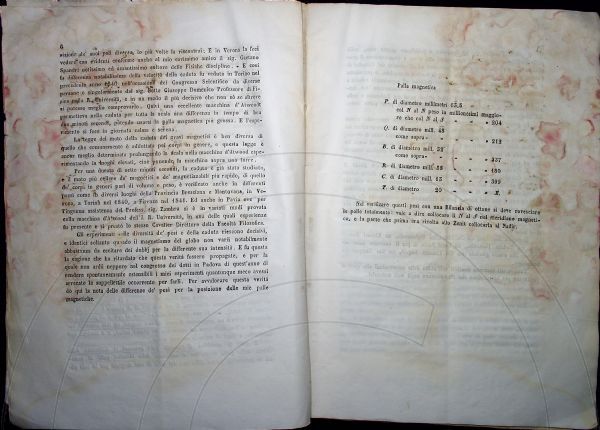 6
azione de' suoi poli diversa, io più volte la riscontrai; E in Verona la feci
vedere con evidenti conferme anche al mio carissimo amico il sig. Gaetano
Spandri notissimo ed amatissimo cultore delle Fisiche discipline. E così
la differenza notabilissima della velocità della caduta fu veduta in Torino nel
precedente anno 1840 nell'occasione del Congresso Scientifico da diverse
persone e singolarmente dal sig. Dottor Giuseppe Domenico Professore di Fi-
sica nella R. Università, e in un modo il più decisivo che non ad
si potesse meglio comprovarlo. Quivi una eccellente macchina d'Atwood
permetteva nella caduta per tutta la scala una differenza in tempo di ben
due minuti secondi, potendo usarsi la palla magnetica più grossa. E l'espe-
rimento si fece in giornata calma e serena.
La legge del moto della caduta dei gravi magnetici è ben diversa di
quella che comunemente è adottata pei corpi in genere, e questa legge è
anche meglio determinata prolungando la scala nella macchina d'Atwood espe-
rimentando in luoghi elevati, cioè ponendo la macchina sopra una torre.
Per una durata di sette minuti secondi, la caduta è già stata studiata,
e il moto più celere de' magnetici e de' magnetizzabili più rapido, di quello
de' corpi in generi pari di volume e peso, è verificato anche in differenti
paesi come in diversi luoghi della Provincia Bresciana e Mantovana, in Ve-
rona, a Torino nel 1840, a Firenze nel 1841. Ed anche in Pavia ove per
l'ingenua assistenza del Profess. sig. Zambra si è in variati modi provata
colla macchina d'Atwood dell'I. R. Università, in una delle quali esperienze
fu presente e si prestò lo stesso Cavalier Direttore della Facoltà Filosofica.
Gli esperimenti sulla diversità de' pesi e della caduta riescono decisivi,
e identici soltanto quando il magnetismo del globo non varii notabilmente
abbastanza da eccitare dei dubbj per la differente sua intensità; E fu questa
la cagione che ha ritardato che questa verità fossero propagate, e per la
quale non ardii neppure nel congresso dei dotti in Padova di quest'anno di
rendere spontaneamente ostensibili i miei esperimenti quantunque meco avessi
arrecate le suppellettile occorrente per farli. Per avvalorare questa verità
dò qui la nota delle differenze de' pesi per la posizione delle mie palle
magnetiche.
Palla magnetica
P. di diametro millimetri 53,5
col N al N peso in millesimi maggio-
re che col N al S " " 204
Q. di diametro mill. 48
come sopra " " " 212
B. di diametro mill. 38
come sopra " " " 337
R. di diametro mill. 38 " " 480
C. di diametro mill. 15 " " 309
T. di diametro 20 " "
Nel verificare questi pesi con una Bilancia di ottone si deve rovesciare
la palla totalmente: vale a dire collocare il N al S nel meridiano magneti-
co, e la parte che prima era rivolta allo Zenit collocarla al Nadir.